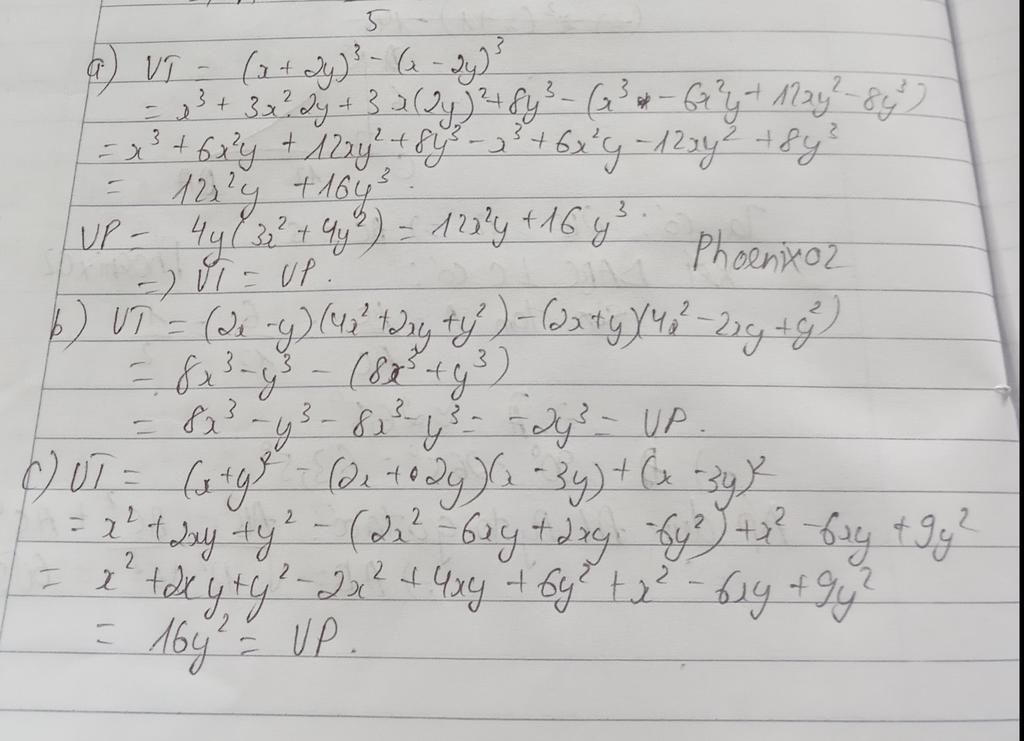 5
a) VT = (x + 2y)³ - (x - 2y)³
= x³ + 3x².2y + 3x(2y)² + 8y³ - (x³ - 6x²y + 12xy² - 8y³)
= x³ + 6x²y + 12xy² + 8y³ - x³ + 6x²y - 12xy² + 8y³
= 12x²y + 16y³.
VP = 4y(3x² + 4y²) = 12x²y + 16y³
Phoenix02
=) VT = VP.
b) VT = (2x - y)(4x² + 2xy + y²) - (2x + y)(4x² - 2xy + y²)
= 8x³ - y³ - (8x³ + y³)
= 8x³ - y³ - 8x³ - y³ = -2y³ = VP.
c) VT = (x + y)² - (2x + 2y)(x - 3y) + (x - 3y)²
= x² + 2xy + y² - (2x² - 6xy + 2xy - 6y²) + x² - 6xy + 9y²
= x² + 2xy + y² - 2x² + 4xy + 6y² + x² - 6xy + 9y²
= 16y² = VP.